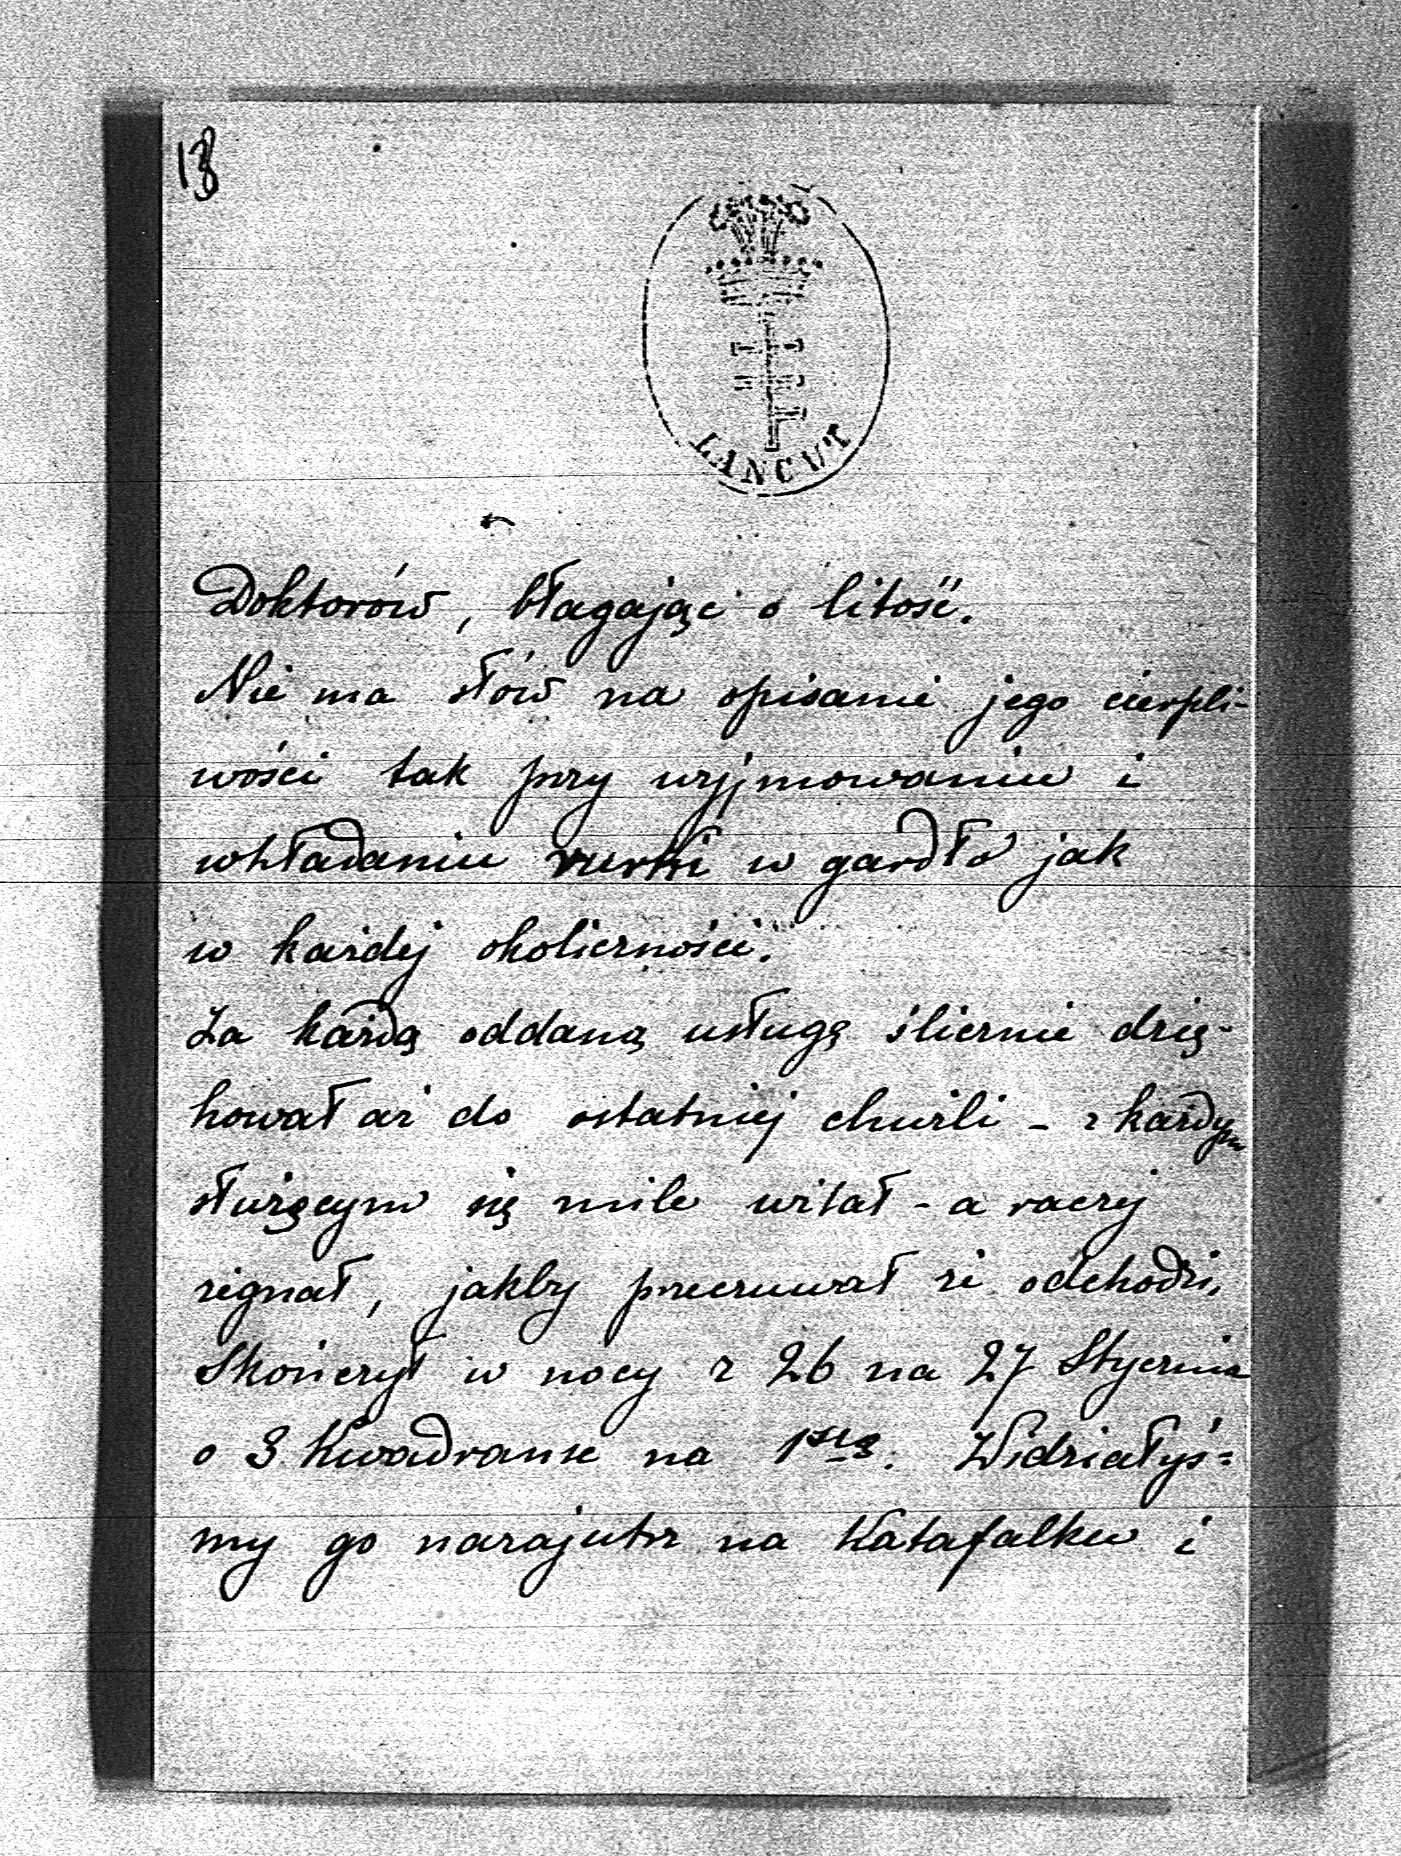 13
LANCUT
Doktorów, błagając o litość.
Nie ma słów na opisanie jego cierpli-
wości tak przy wyjmowaniu i
wkładaniu rurki w gardło jak
w każdej okoliczności.
Za każdą oddaną usługę ślicznie dzię-
kował aż do ostatniej chwili – z każdym
służącym się mile witał – a raczej
żegnał, jakby przeczuwał że odchodzi.
Skończył w nocy z 26 na 27 Stycznia
o 3 kwadranse na 1szą. Widziałyś=
my go nazajutrz na Katafalku i